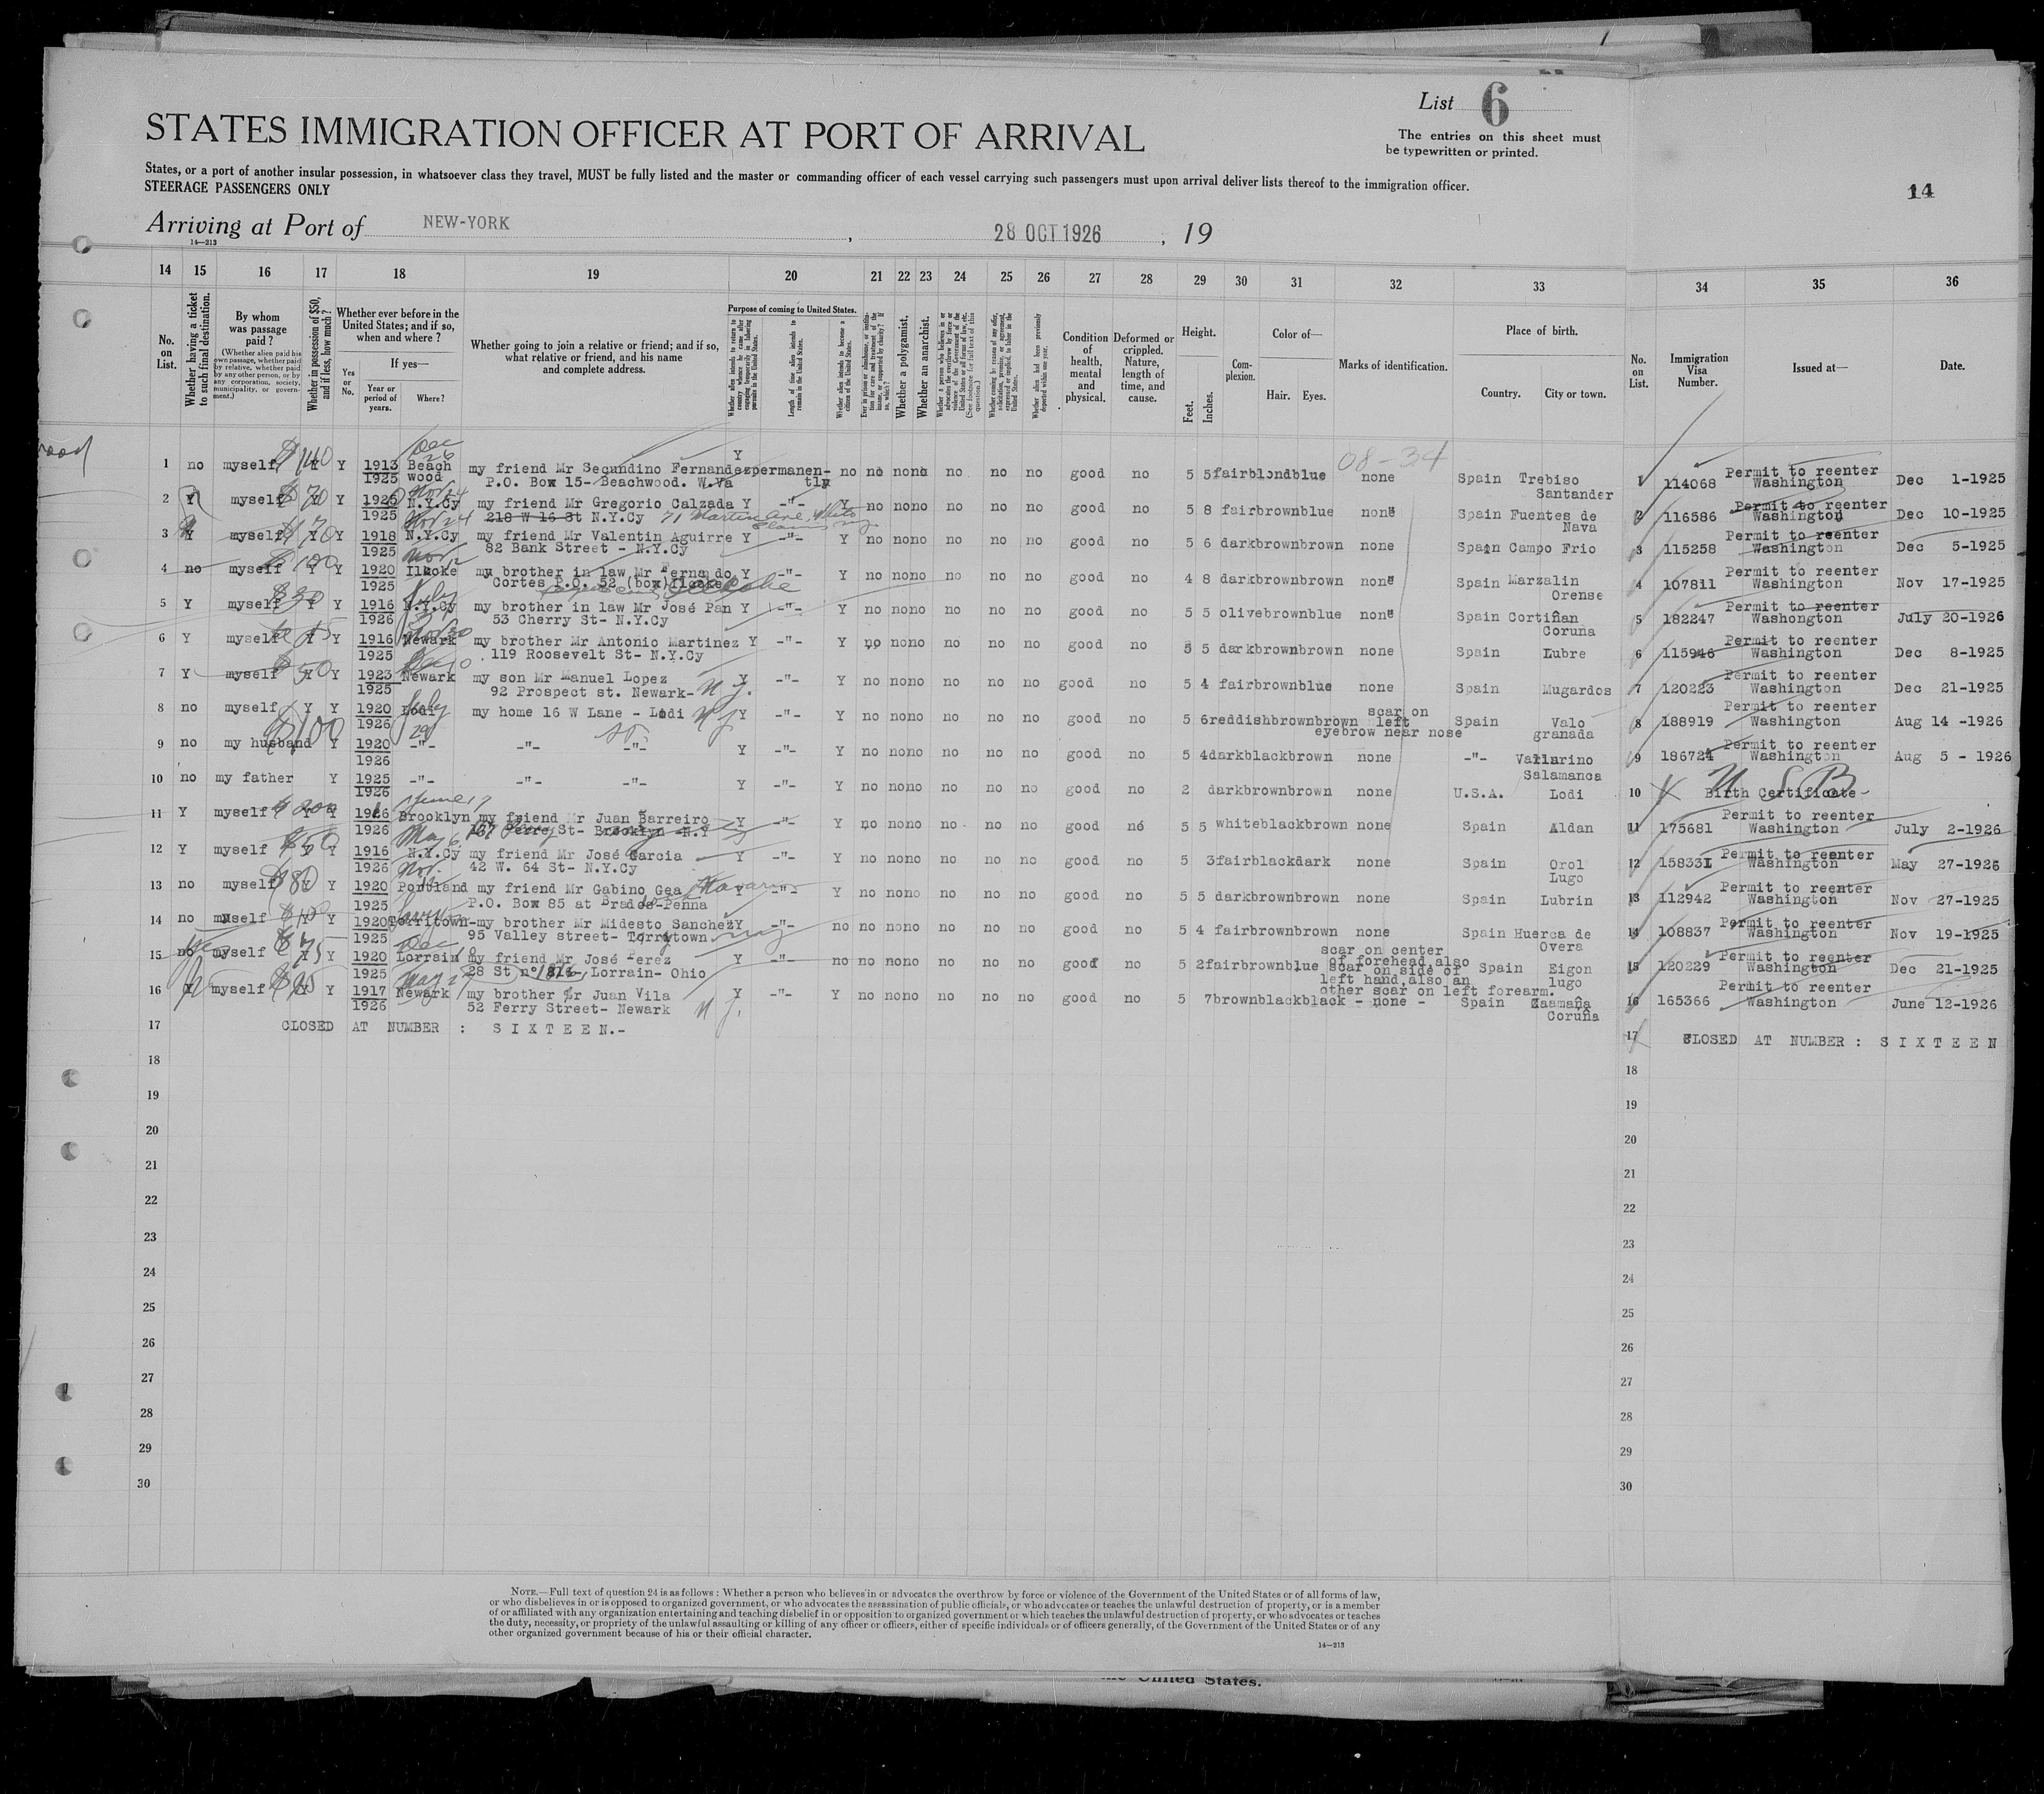 List 6
The entries on this sheet must
be typewritten or printed.
STATES IMMIGRATION OFFICER AT PORT OF ARRIVAL
States, or a port of another insular possession, in whatsoever class they travel, MUST be fully listed and the master or commanding officer of each vessel carrying such passengers must upon arrival deliver lists thereof to the immigration officer.
STEERAGE PASSENGERS ONLY
14
Arriving at Port of NEW-YORK , 28 OCT 1926 , 19
14—213
14 15 16 17 18 19 20 21 22 23 24 25 26 27 28 29 30 31 32 33 34 35 36
No. on List.
Whether having a ticket to such final destination.
By whom was passage paid?
(Whether alien paid his own passage, whether paid by relative, whether paid by any other person, or by any corporation, society, municipality, or government.)
Whether in possession of $50, and if less, how much?
Whether ever before in the United States; and if so, when and where?
If yes—
Yes or No.
Year or period of years.
Where?
Whether going to join a relative or friend; and if so, what relative or friend, and his name and complete address.
Purpose of coming to United States.
Length of time alien intends to remain in the United States.
Whether alien intends to become a citizen of the United States.
Whether a polygamist.
Whether an anarchist.
Condition of health, mental and physical.
Deformed or crippled. Nature, length of time, and cause.
Height.
Feet. Inches.
Complexion.
Color of—
Hair. Eyes.
Marks of identification.
Place of birth.
Country. City or town.
No. on List.
Immigration Visa Number.
Issued at—
Date.
08-34
1 no myself $140 Y Y 1913 Beach my friend Mr Secundino Fernandez Y permanen- no no nono no no no good no 5 5 fair blond blue none Spain Trebiso 1 114068 Permit to reenter Dec 1-1925
1925 wood P.O. Box 15- Beachwood. W.Va tly Santander Washington
2 Y myself $70 Y Y 1925 N.Y.Cy my friend Mr Gregorio Calzada Y -"- Y no nono no no no good no 5 8 fair brown blue none Spain Fuentes de 2 116586 Permit to reenter Dec 10-1925
1925 218 W 16 St N.Y.Cy 71 Martin Ave, White Plains ny Nava Washington
3 Y myself $70 Y Y 1918 N.Y.Cy my friend Mr Valentin Aguirre Y -"- Y no nono no no no good no 5 6 dark brown brown none Spain Campo Frio 3 115258 Permit to reenter Dec 5-1925
1925 82 Bank Street - N.Y.Cy Washington
4 no myself $100 Y Y 1920 Ilkoke my brother in law Mr Fernando Y -"- Y no nono no no no good no 4 8 dark brown brown none Spain Marzalin 4 107811 Permit to reenter Nov 17-1925
1925 Cortes P.O. 52 (box) Orense Washington
5 Y myself $30 Y Y 1916 N.Y.Cy my brother in law Mr José Pan Y -"- Y no nono no no no good no 5 5 olive brown blue none Spain Cortiñan 5 182247 Permit to reenter July 20-1926
1926 53 Cherry St- N.Y.Cy Coruña Washongton
6 Y myself Y Y 1916 Newark my brother Mr Antonio Martinez Y -"- Y no nono no no no good no 5 5 dark brown brown none Spain Lubre 6 115946 Permit to reenter Dec 8-1925
1925 119 Roosevelt St- N.Y.Cy Washington
7 Y myself $50 Y Y 1923 Newark my son Mr Manuel Lopez Y -"- Y no nono no no no good no 5 4 fair brown blue none Spain Mugardos 7 120223 Permit to reenter Dec 21-1925
1925 92 Prospect st. Newark- N.J. Washington
8 no myself Y Y 1920 Lodi my home 16 W Lane - Lodi N J Y -"- Y no nono no no no good no 5 6 reddish brown brown scar on left eyebrow near nose Spain Valo granada 8 188919 Permit to reenter Aug 14 -1926
1926 Washington
9 no my husband $100 Y 1920 -"- -"- -"- Y -"- Y no nono no no no good no 5 4 dark black brown none -"- Salamanca 9 186724 Permit to reenter Aug 5 - 1926
1926 Washington
10 no my father Y 1925 -"- -"- -"- Y -"- Y no nono no no no good no 2 dark brown brown none U.S.A. Lodi 10 U S B Birth Certificate-
1926
11 Y myself $200 Y Y 1926 Brooklyn my friend Mr Juan Barreiro Y -"- Y no nono no no no good no 5 5 white black brown none Spain Aldan 11 175681 Permit to reenter July 2-1926
1926 St- Brooklyn N.Y Washington
12 Y myself $50 Y Y 1916 N.Y.Cy my friend Mr José Garcia Y -"- Y no nono no no no good no 5 3 fair black dark none Spain Orol 12 158331 Permit to reenter May 27-1926
1926 42 W. 64 St- N.Y.Cy Lugo Washington
13 no myself $80 Y Y 1920 Portland my friend Mr Gabino Gea Navarro Y -"- Y no nono no no no good no 5 5 dark brown brown none Spain Lubrin 13 112942 Permit to reenter Nov 27-1925
1925 P.O. Box 85 at Penna Washington
14 no myself Y Y 1920 Torritown- my brother Mr Midesto Sanchez Y -"- no no nono no no no good no 5 4 fair brown brown none Spain Huerca de 14 108837 Permit to reenter Nov 19-1925
1925 95 Valley street- Torrytown Overa Washington
15 no myself $75 Y Y 1920 Lorrain my friend Mr José Perez Y -"- no no nono no no no good no 5 2 fair brown blue scar on center of forehead also scar on side of left hand, also an other scar on left forearm. Spain Eigon 15 120229 Permit to reenter Dec 21-1925
1925 28 St nº 1816- Lorrain- Ohio lugo Washington
16 Y myself Y Y 1917 Newark my brother Mr Juan Vila Y -"- Y no nono no no no good no 5 7 brown black black - none - Spain Zaamaña 16 165366 Permit to reenter June 12-1926
1926 52 Ferry Street- Newark N J. Coruña Washington
17 CLOSED AT NUMBER : S I X T E E N.- 17 CLOSED AT NUMBER : S I X T E E N
18 18
19 19
20 20
21 21
22 22
23 23
24 24
25 25
26 26
27 27
28 28
29 29
30 30
NOTE.—Full text of question 24 is as follows: Whether a person who believes in or advocates the overthrow by force or violence of the Government of the United States or of all forms of law,
or who disbelieves in or is opposed to organized government, or who advocates the assassination of public officials, or who advocates or teaches the unlawful destruction of property, or is a member
of or affiliated with any organization entertaining and teaching disbelief in or opposition to organized government or which teaches the unlawful destruction of property, or who advocates or teaches
the duty, necessity, or propriety of the unlawful assaulting or killing of any officer or officers, either of specific individuals or of officers generally, of the Government of the United States or of any
other organized government because of his or their official character.
14—213
United States.